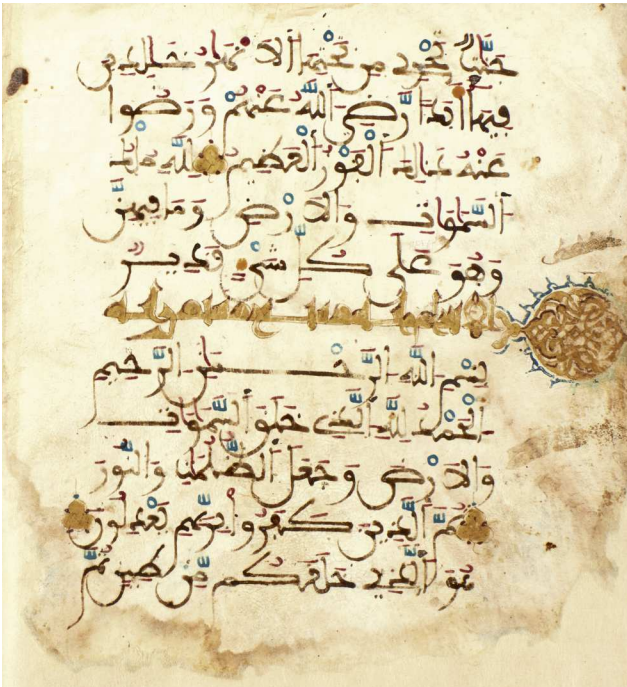 جنت تجرى من تحتها الانهر خلدين
فيها ابدا رضى الله عنهم ورضوا
عنه ذلك الفوز العظيم لله ملك
السموت والارض وما فيهن
وهو على كل شىء قدير
بسم الله الرحمن الرحيم
الحمد لله الذى خلق السموت
والارض وجعل الظلمت والنور
ثم الذين كفروا بربهم يعدلون
هو الذى خلقكم من طين ثم